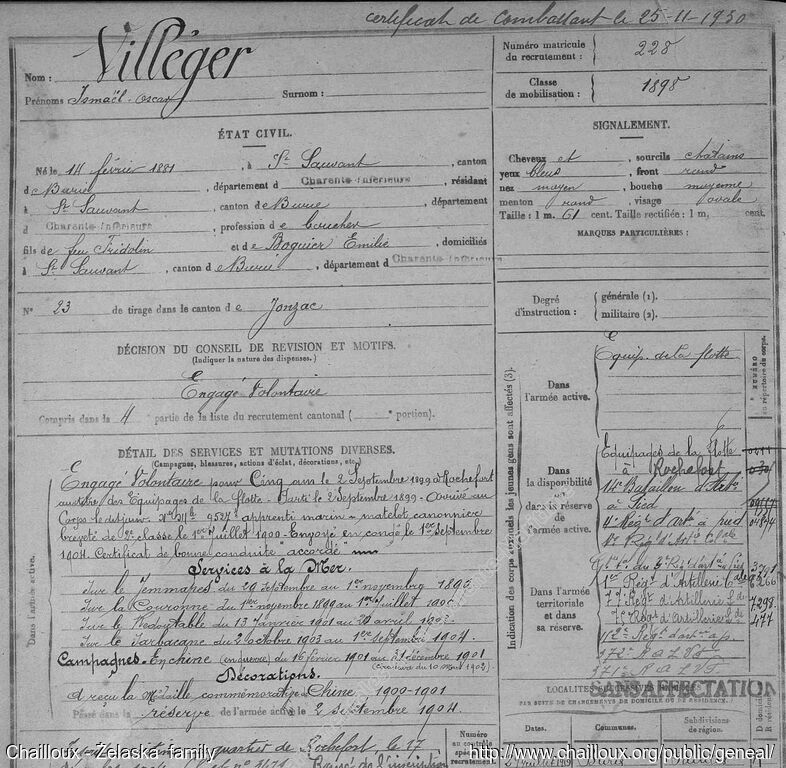 certificat de combattant le 25-11-1930
Nom : Villéger
Prénoms Ismaël Oscar Surnom :
Numéro matricule du recrutement : 228
Classe de mobilisation : 1898
ÉTAT CIVIL.
Né le 14 février 1881, à St Sauvant, canton
d Burie, département d Charente Inférieure, résidant
à St Sauvant, canton de Burie, département
d Charente Inférieure, profession de boucher
fils de feu Fridolin et de Boguier Emilie, domiciliés
à St Sauvant, canton de Burie, département d Charente Inférieure
N° 23 de tirage dans le canton de Jonzac
SIGNALEMENT.
Cheveux et sourcils chatains
yeux bleus, front rond
nez moyen, bouche moyenne
menton rond, visage ovale
Taille : 1 m. 61 cent. Taille rectifiée : 1 m, cent.
MARQUES PARTICULIÈRES :
Degré d'instruction : générale (1).
militaire (2).
DÉCISION DU CONSEIL DE REVISION ET MOTIFS.
(Indiquer la nature des dispenses.)
Engagé Volontaire
Compris dans la 4 partie de la liste du recrutement cantonal ( portion).
DÉTAIL DES SERVICES ET MUTATIONS DIVERSES.
(Campagnes, blessures, actions d'éclat, décorations, etc.)
Engagé Volontaire pour Cinq ans le 2 Septembre 1899 à Rochefort
au titre des Equipages de la flotte - Parti le 2 Septembre 1899 - Arrivé au
Corps le dit jour. apprenti marin - matelot canonnier
breveté de 2e classe le 1er juillet 1900 - Envoyé en congé le 1er Septembre
1904. Certificat de bonne conduite "accordé"
Services à la Mer.
Sur le Jemmapes du 29 Septembre au 1er novembre 1899
Sur la Couronne du 1er novembre 1899 au 1er juillet 1900
Sur le Redoutable du 13 janvier 1901 au 20 avril
Sur le Sarbacane du 2 octobre 1903 au 1er Septembre 1904.
Campagnes. En chine (en guerre) du 16 février 1901 au 31 décembre 1901
(Circulaire du 10 Mars 1902)
Décorations.
a reçu la Médaille commémorative Chine 1900-1901
Passé dans la réserve de l'armée active le 2 Septembre 1904
de Rochefort le 17
Dans l'armée active.
Indication des corps auxquels les jeunes gens sont affectés (3).
NUMÉRO au répertoire du corps.
Dans l'armée active.
Equip. de la flotte
Dans la disponibilité ou dans la réserve de l'armée active.
Equipages de la flotte
à Rochefort
14e Bataillon d'Artie
à Pied
4e Régt d'artie à pied
Dans l'armée territoriale et dans sa réserve.
1er Régt d'Artillerie
7e Régt d'Artillerie
7e Régt d'Artillerie
7298
477
LOCALITÉS SUCCESSIVES HABITÉES
PAR SUITE DE CHANGEMENTS DE DOMICILE OU DE RÉSIDENCE.
SANS AFFECTATION
Dates. Communes. Subdivisions de région.
D domicile R résidence
Paris
Chailloux - Zelaskin family
http://www.chailloux.org/public/geneal/